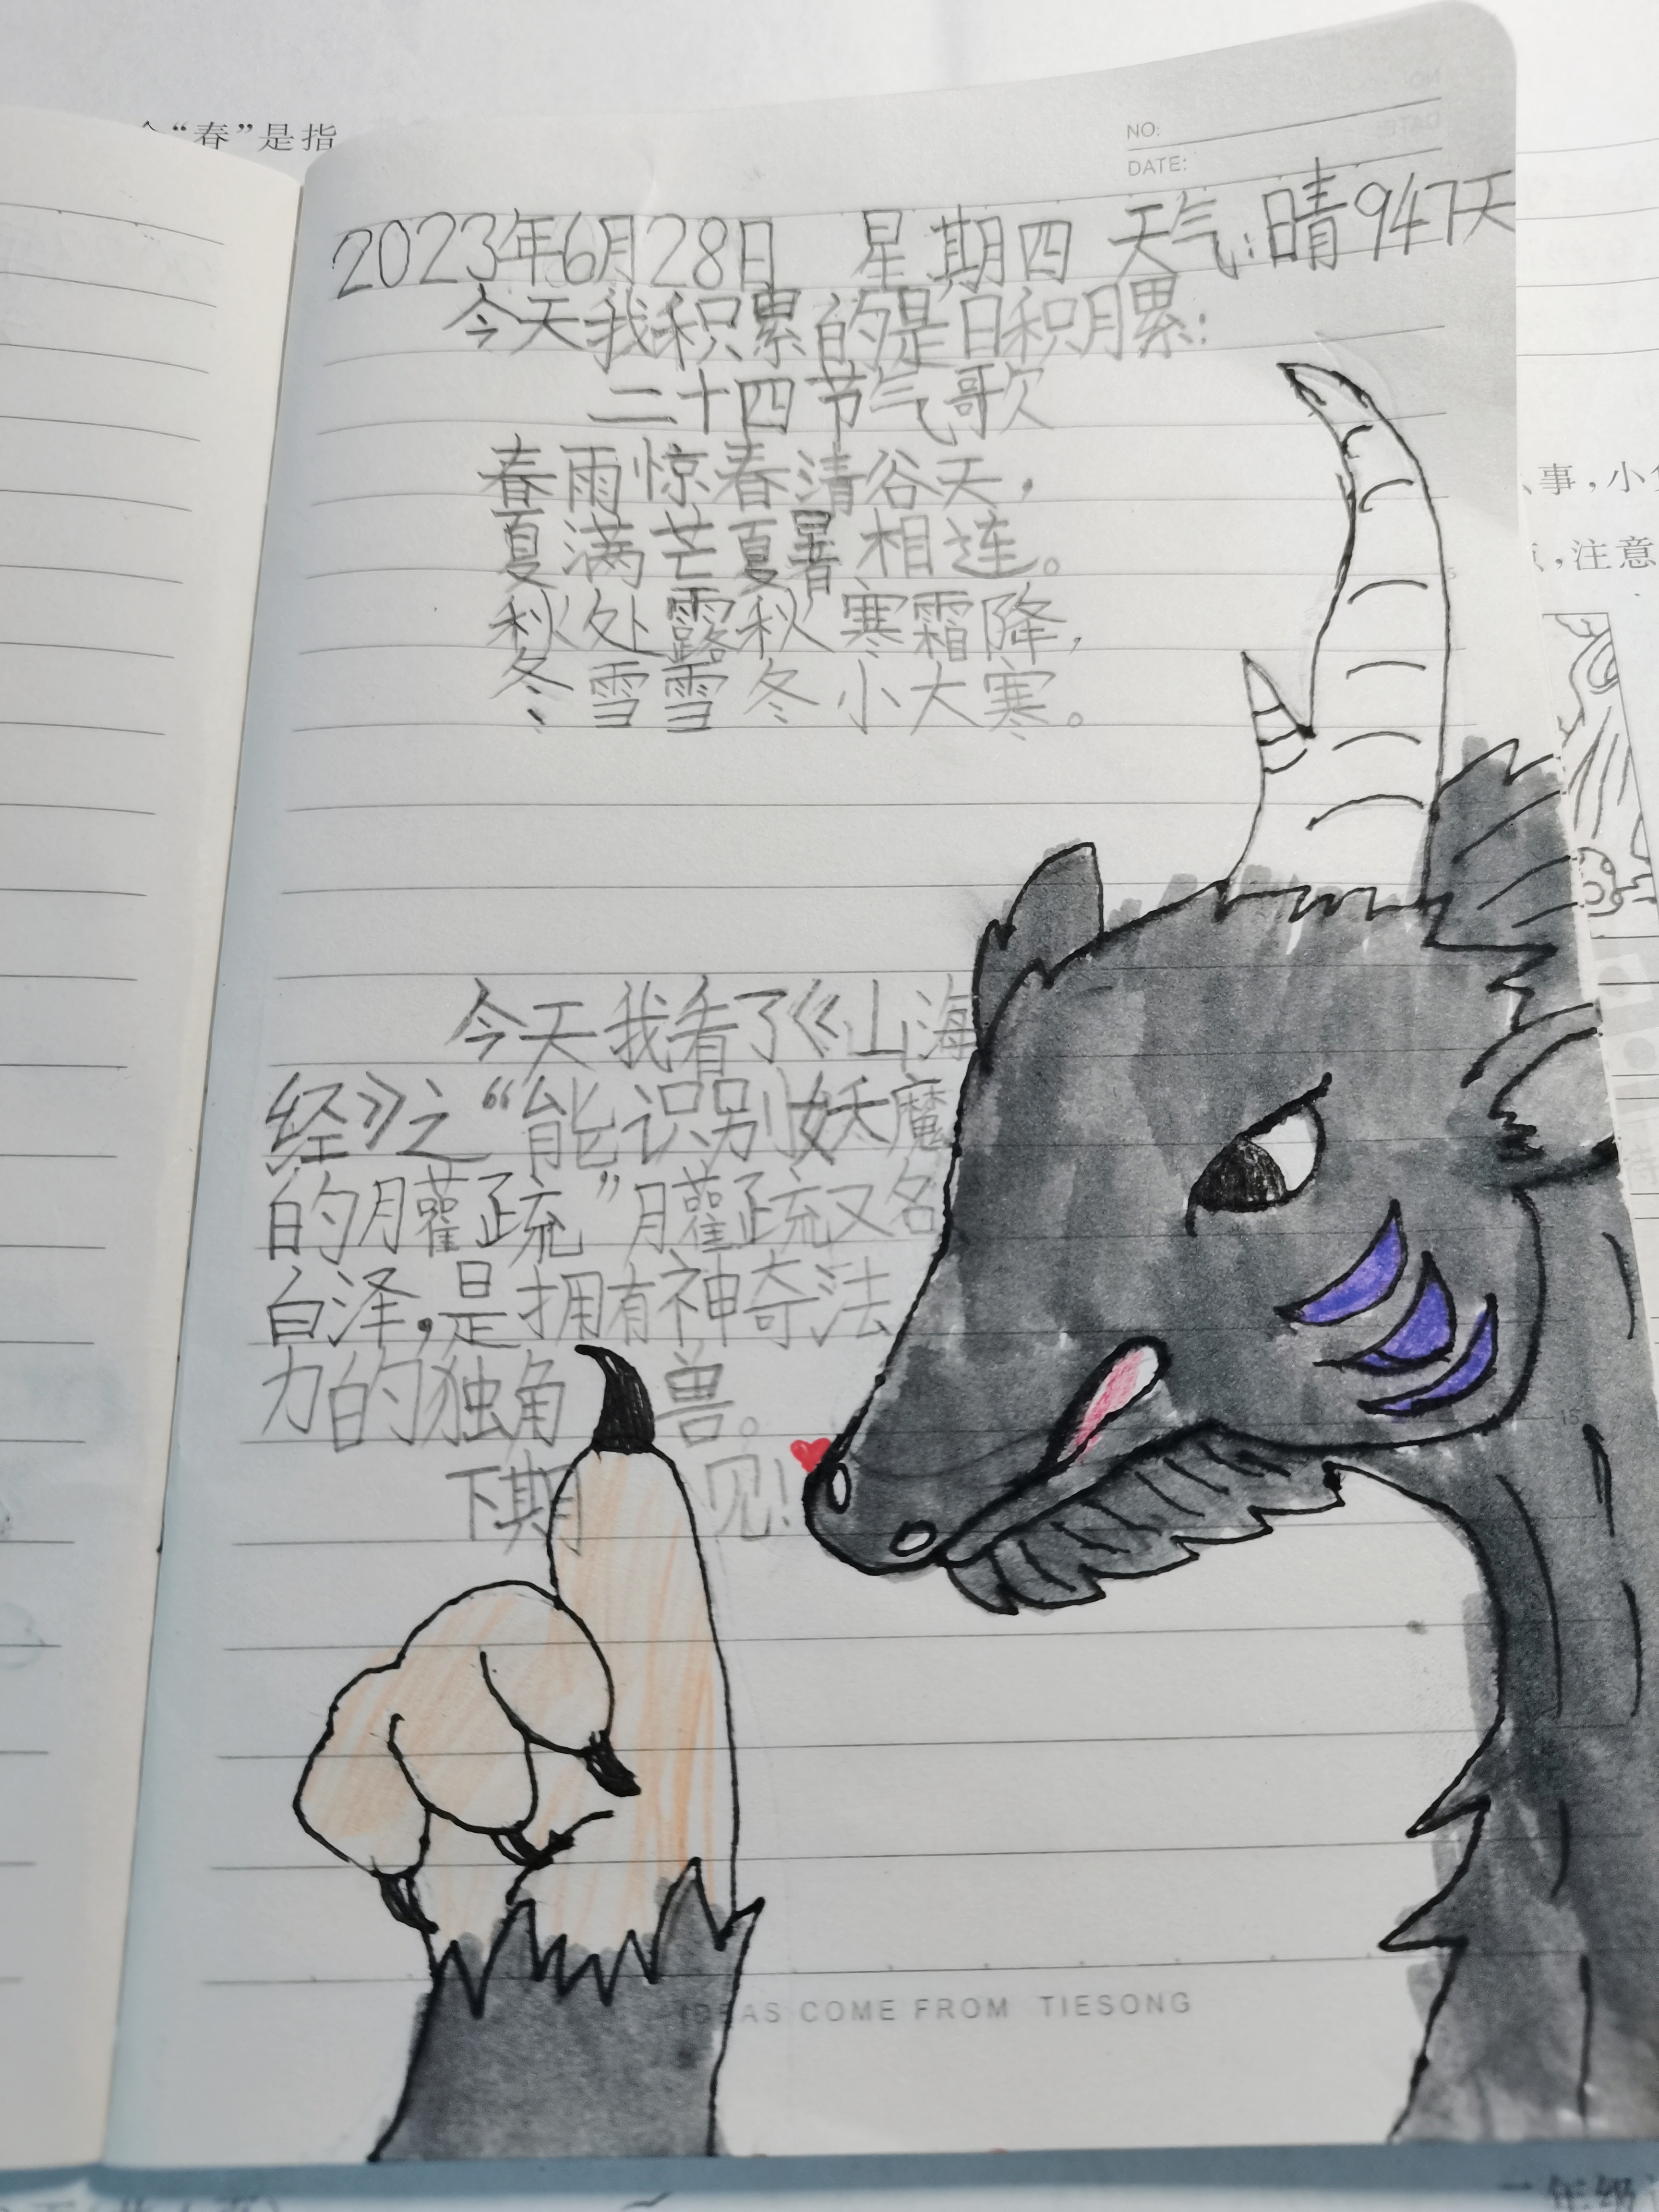 “春”是指
NO:
DATE:
2023年6月28日 星期四 天气:晴 947天
今天我积累的是日积月累:
二十四节气歌
春雨惊春清谷天,
夏满芒夏暑相连。
秋处露秋寒霜降,
冬雪雪冬小大寒。
事,小
,注意
今天我看了《山海
经》之“能识别妖魔
的臛疏”臛疏又名
白泽,是拥有神奇法
力的独角兽。
下期见!
15
IDEAS COME FROM TIESONG
二年级